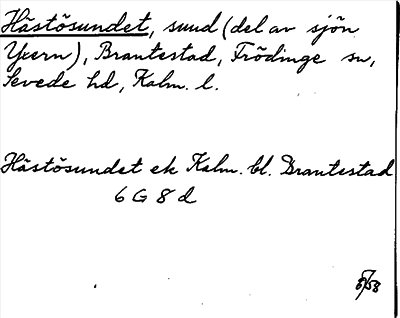 Hästösundet, sund (del av sjön
Yxern), Brantestad, Frödinge sn,
Sevede hd, Kalm. l.
Hästösundet ek Kalm. bl. Brantestad
6 G 8 d